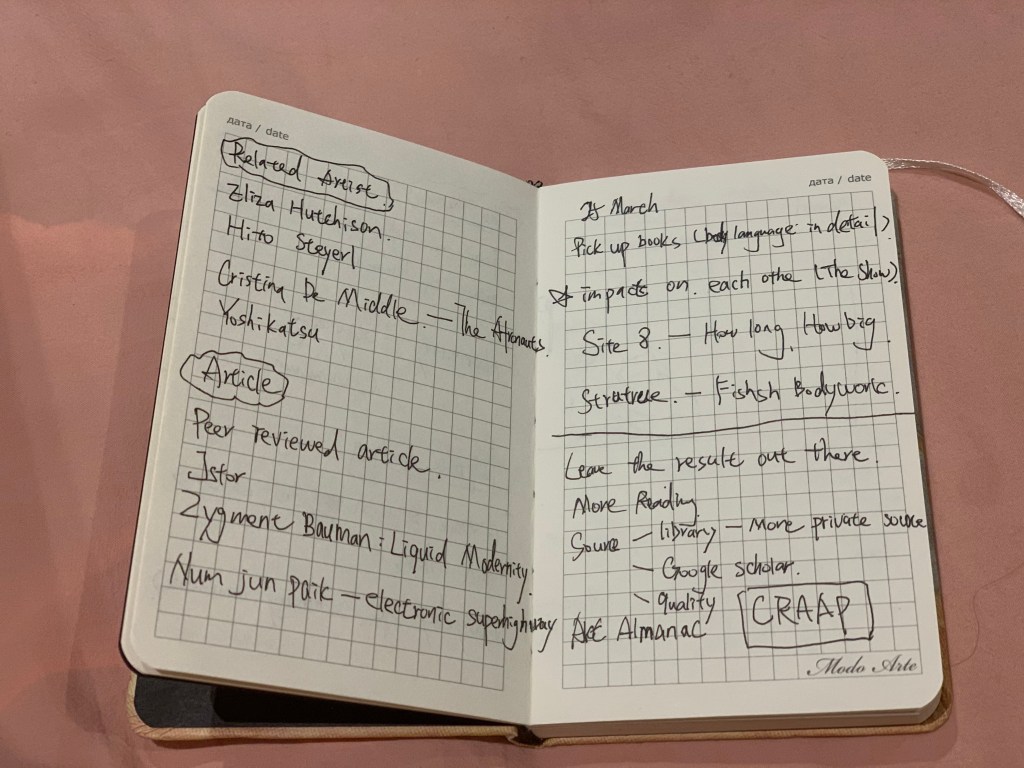 дата / date
Related Artist.
Eliza Hutchison.
Hito Steyerl
Cristina De Middle. — The Afronauts.
Yoshikatsu
Article
Peer reviewed article.
Jstor
Zygment Bauman: Liquid Modernity.
Num jun paik — electronic superhighway
дата / date
March
Pick up books (body language in detail).
impacts on each othe (The Show).
Site 8. — How long, How big.
— Fishsh Bodywork.
Leave the result out there.
More Reading
Source — library — More private source
— Google scholar.
— quality
Art Almanac
CRAAP
Modo Arte